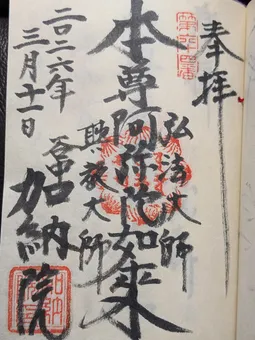 奉拝
弘法大師
本尊阿弥陀如来
興教大師
二〇二六年
三月十一日
谷中
加納院